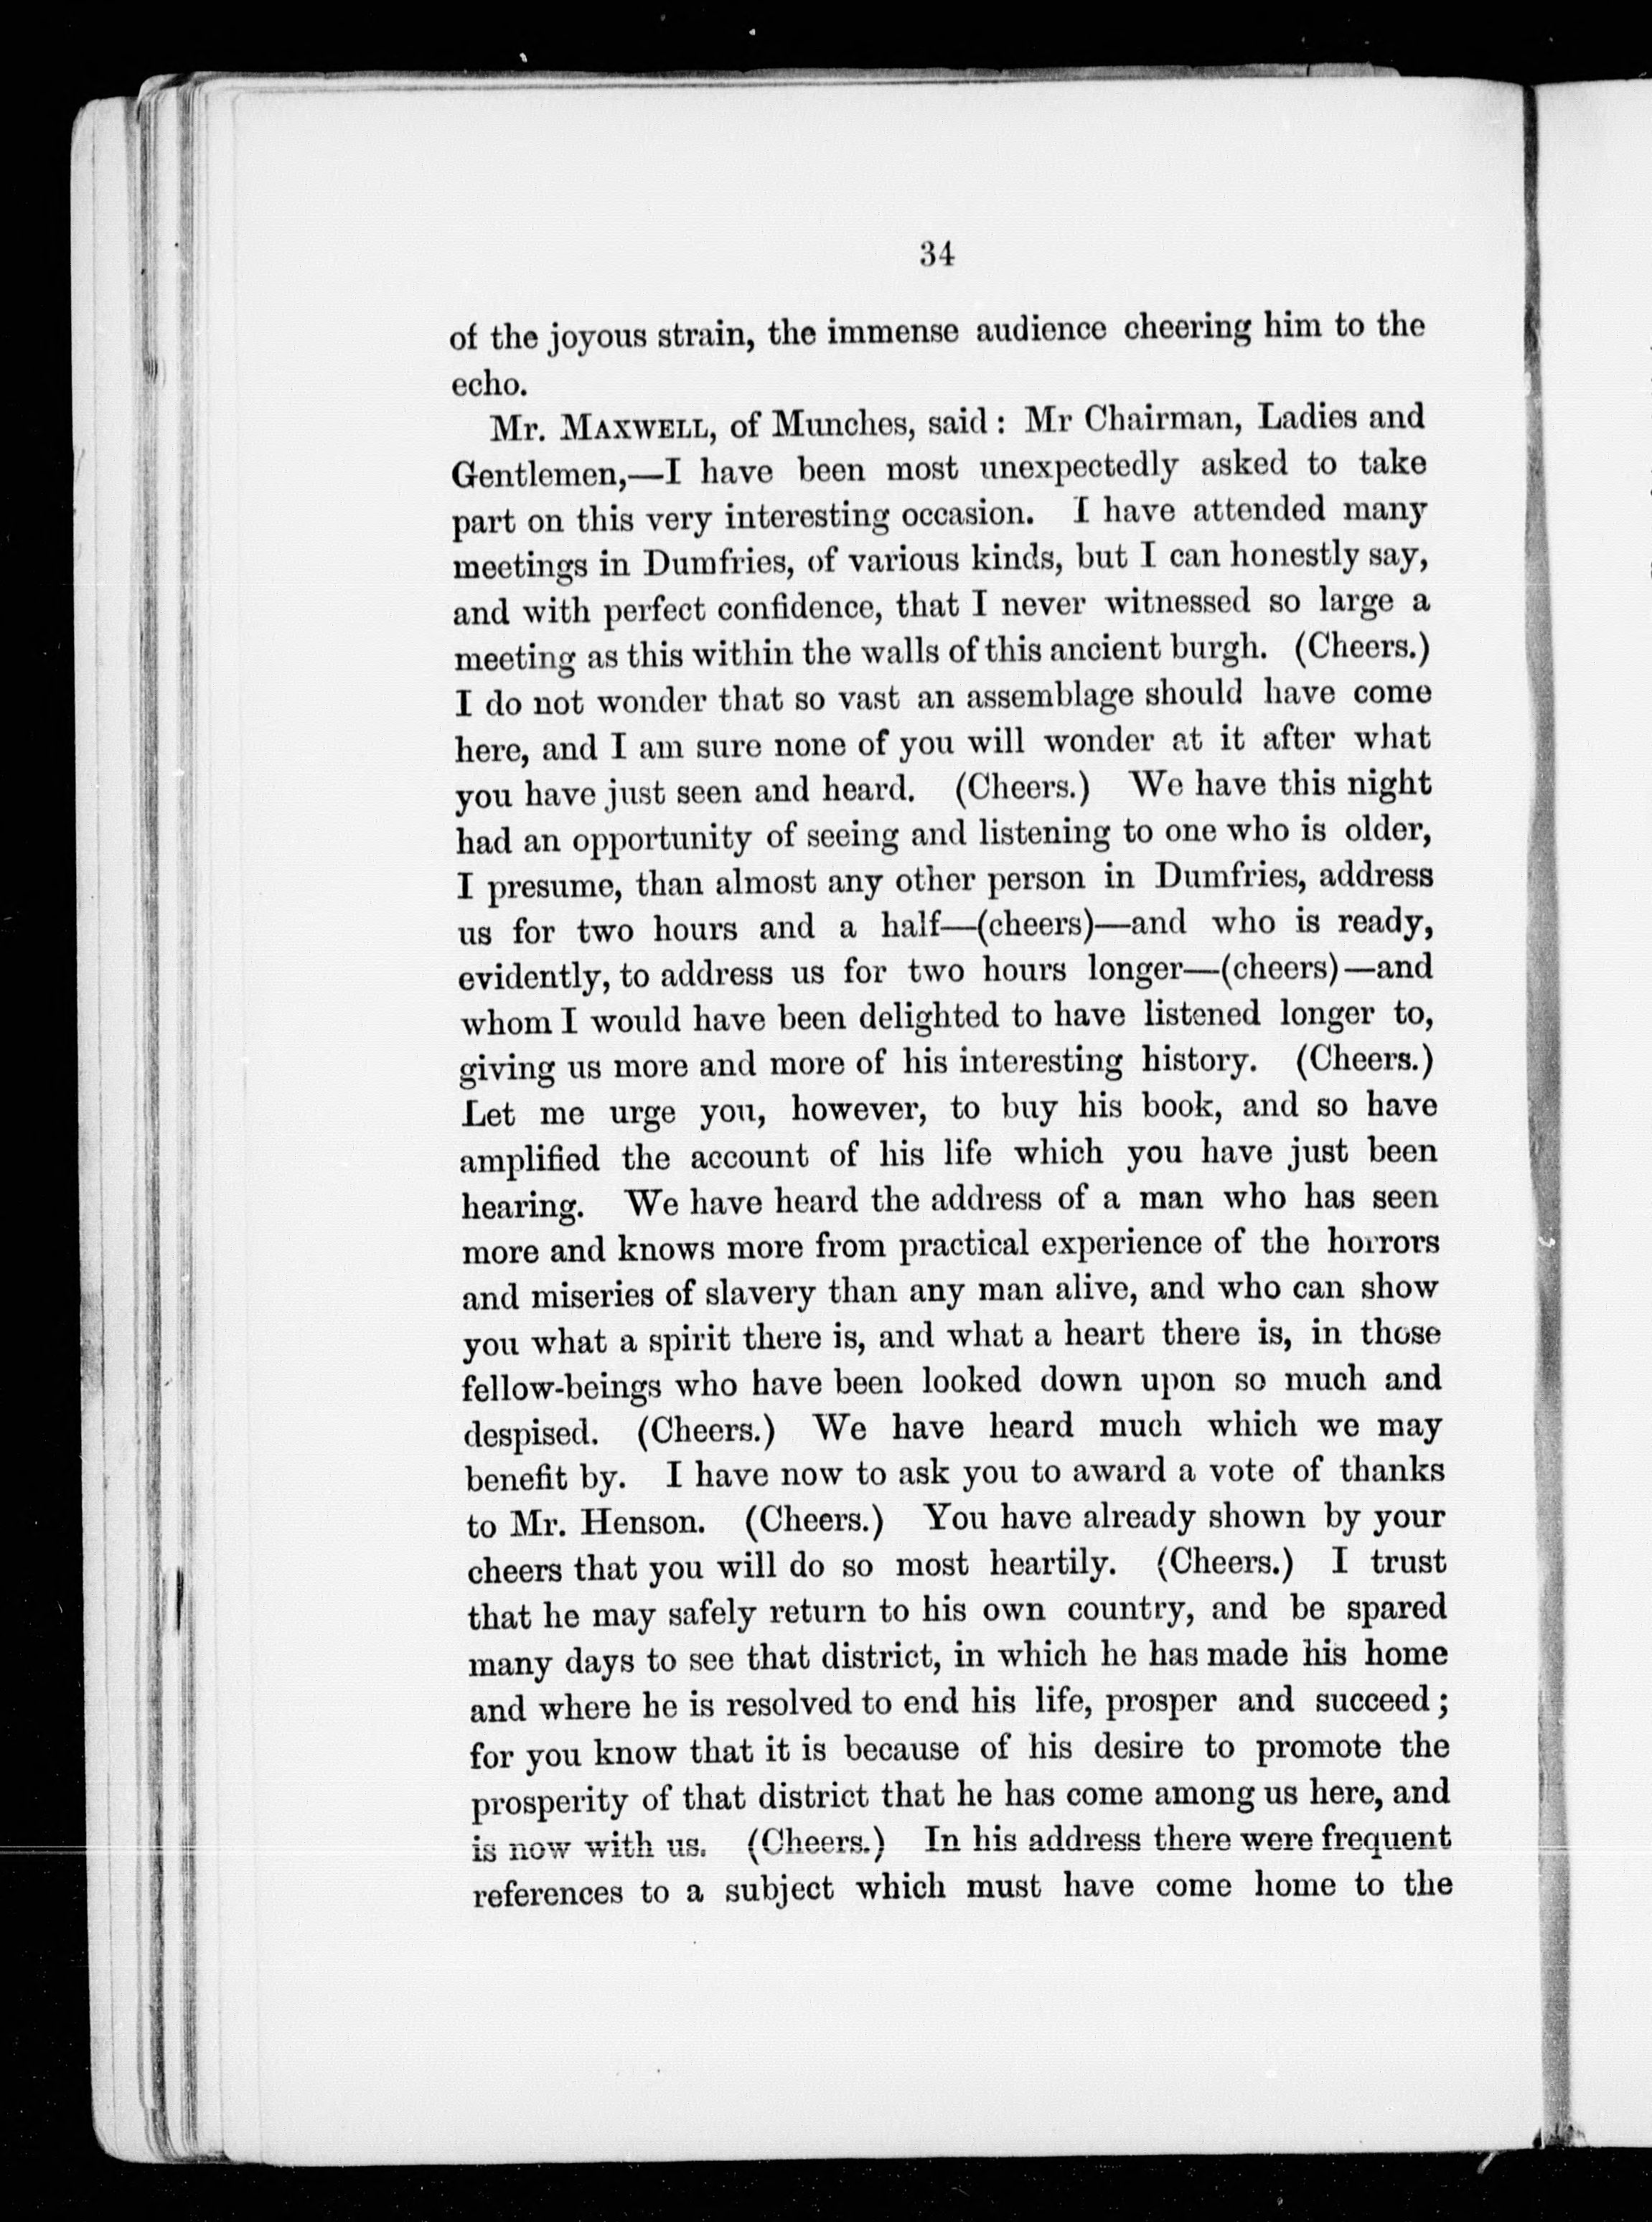 34
of the joyous strain, the immense audience cheering him to the
echo.
Mr. MAXWELL, of Munches, said: Mr Chairman, Ladies and
Gentlemen,—I have been most unexpectedly asked to take
part on this very interesting occasion. I have attended many
meetings in Dumfries, of various kinds, but I can honestly say,
and with perfect confidence, that I never witnessed so large a
meeting as this within the walls of this ancient burgh. (Cheers.)
I do not wonder that so vast an assemblage should have come
here, and I am sure none of you will wonder at it after what
you have just seen and heard. (Cheers.) We have this night
had an opportunity of seeing and listening to one who is older,
I presume, than almost any other person in Dumfries, address
us for two hours and a half—(cheers)—and who is ready,
evidently, to address us for two hours longer—(cheers)—and
whom I would have been delighted to have listened longer to,
giving us more and more of his interesting history. (Cheers.)
Let me urge you, however, to buy his book, and so have
amplified the account of his life which you have just been
hearing. We have heard the address of a man who has seen
more and knows more from practical experience of the horrors
and miseries of slavery than any man alive, and who can show
you what a spirit there is, and what a heart there is, in those
fellow-beings who have been looked down upon so much and
despised. (Cheers.) We have heard much which we may
benefit by. I have now to ask you to award a vote of thanks
to Mr. Henson. (Cheers.) You have already shown by your
cheers that you will do so most heartily. (Cheers.) I trust
that he may safely return to his own country, and be spared
many days to see that district, in which he has made his home
and where he is resolved to end his life, prosper and succeed;
for you know that it is because of his desire to promote the
prosperity of that district that he has come among us here, and
is now with us. (Cheers.) In his address there were frequent
references to a subject which must have come home to the